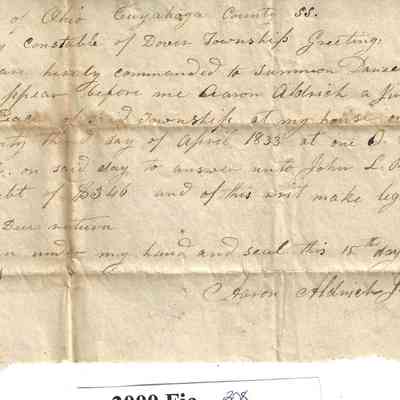 of Ohio Cuyahoga County SS.
Constable of Dover Township Greeting;
are hereby commanded to summon
appear before me Aaron Aldrich a
Peace of said Township at my house
the day of April 1833 at one O.
on said day to answer unto John L.
debt of $346 and of this writ make leg
Due return
under my hand and seal this 15th day
Aaron Aldrich J
2000 Fic 208